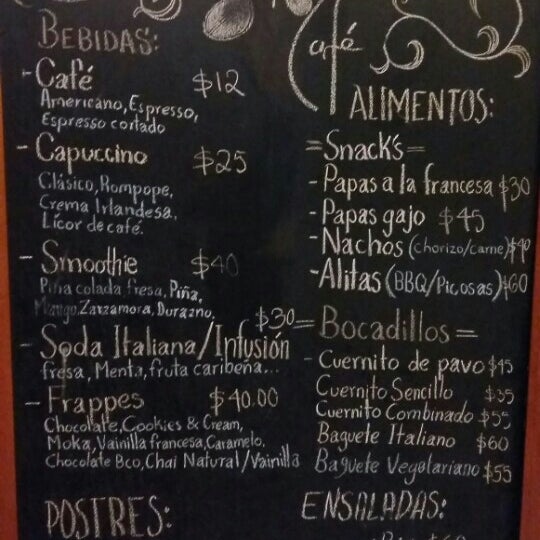 BEBIDAS:
- Café $12
Americano, Espresso,
Espresso cortado
- Capuccino $25
Clásico, Rompope,
Crema Irlandesa,
Licor de café.
- Smoothie $40
Piña colada fresa, Piña,
Mango, Zarzamora, Durazno.
- Soda Italiana/Infusión $30
fresa, Menta, fruta caribeña...
- Frappes $40.00
Chocolate, Cookies & Cream,
Moka, Vainilla francesa, Caramelo,
Chocolate Bco, Chai Natural/Vainilla
POSTRES:
Café
ALIMENTOS:
=Snack's=
- Papas a la francesa $30
- Papas gajo $45
- Nachos (chorizo/carne) $40
- Alitas (BBQ/Picosas) $60
= Bocadillos =
- Cuernito de pavo $45
Cuernito Sencillo $35
Cuernito Combinado $55
Baguete Italiano $60
Baguete Vegetariano $55
ENSALADAS: